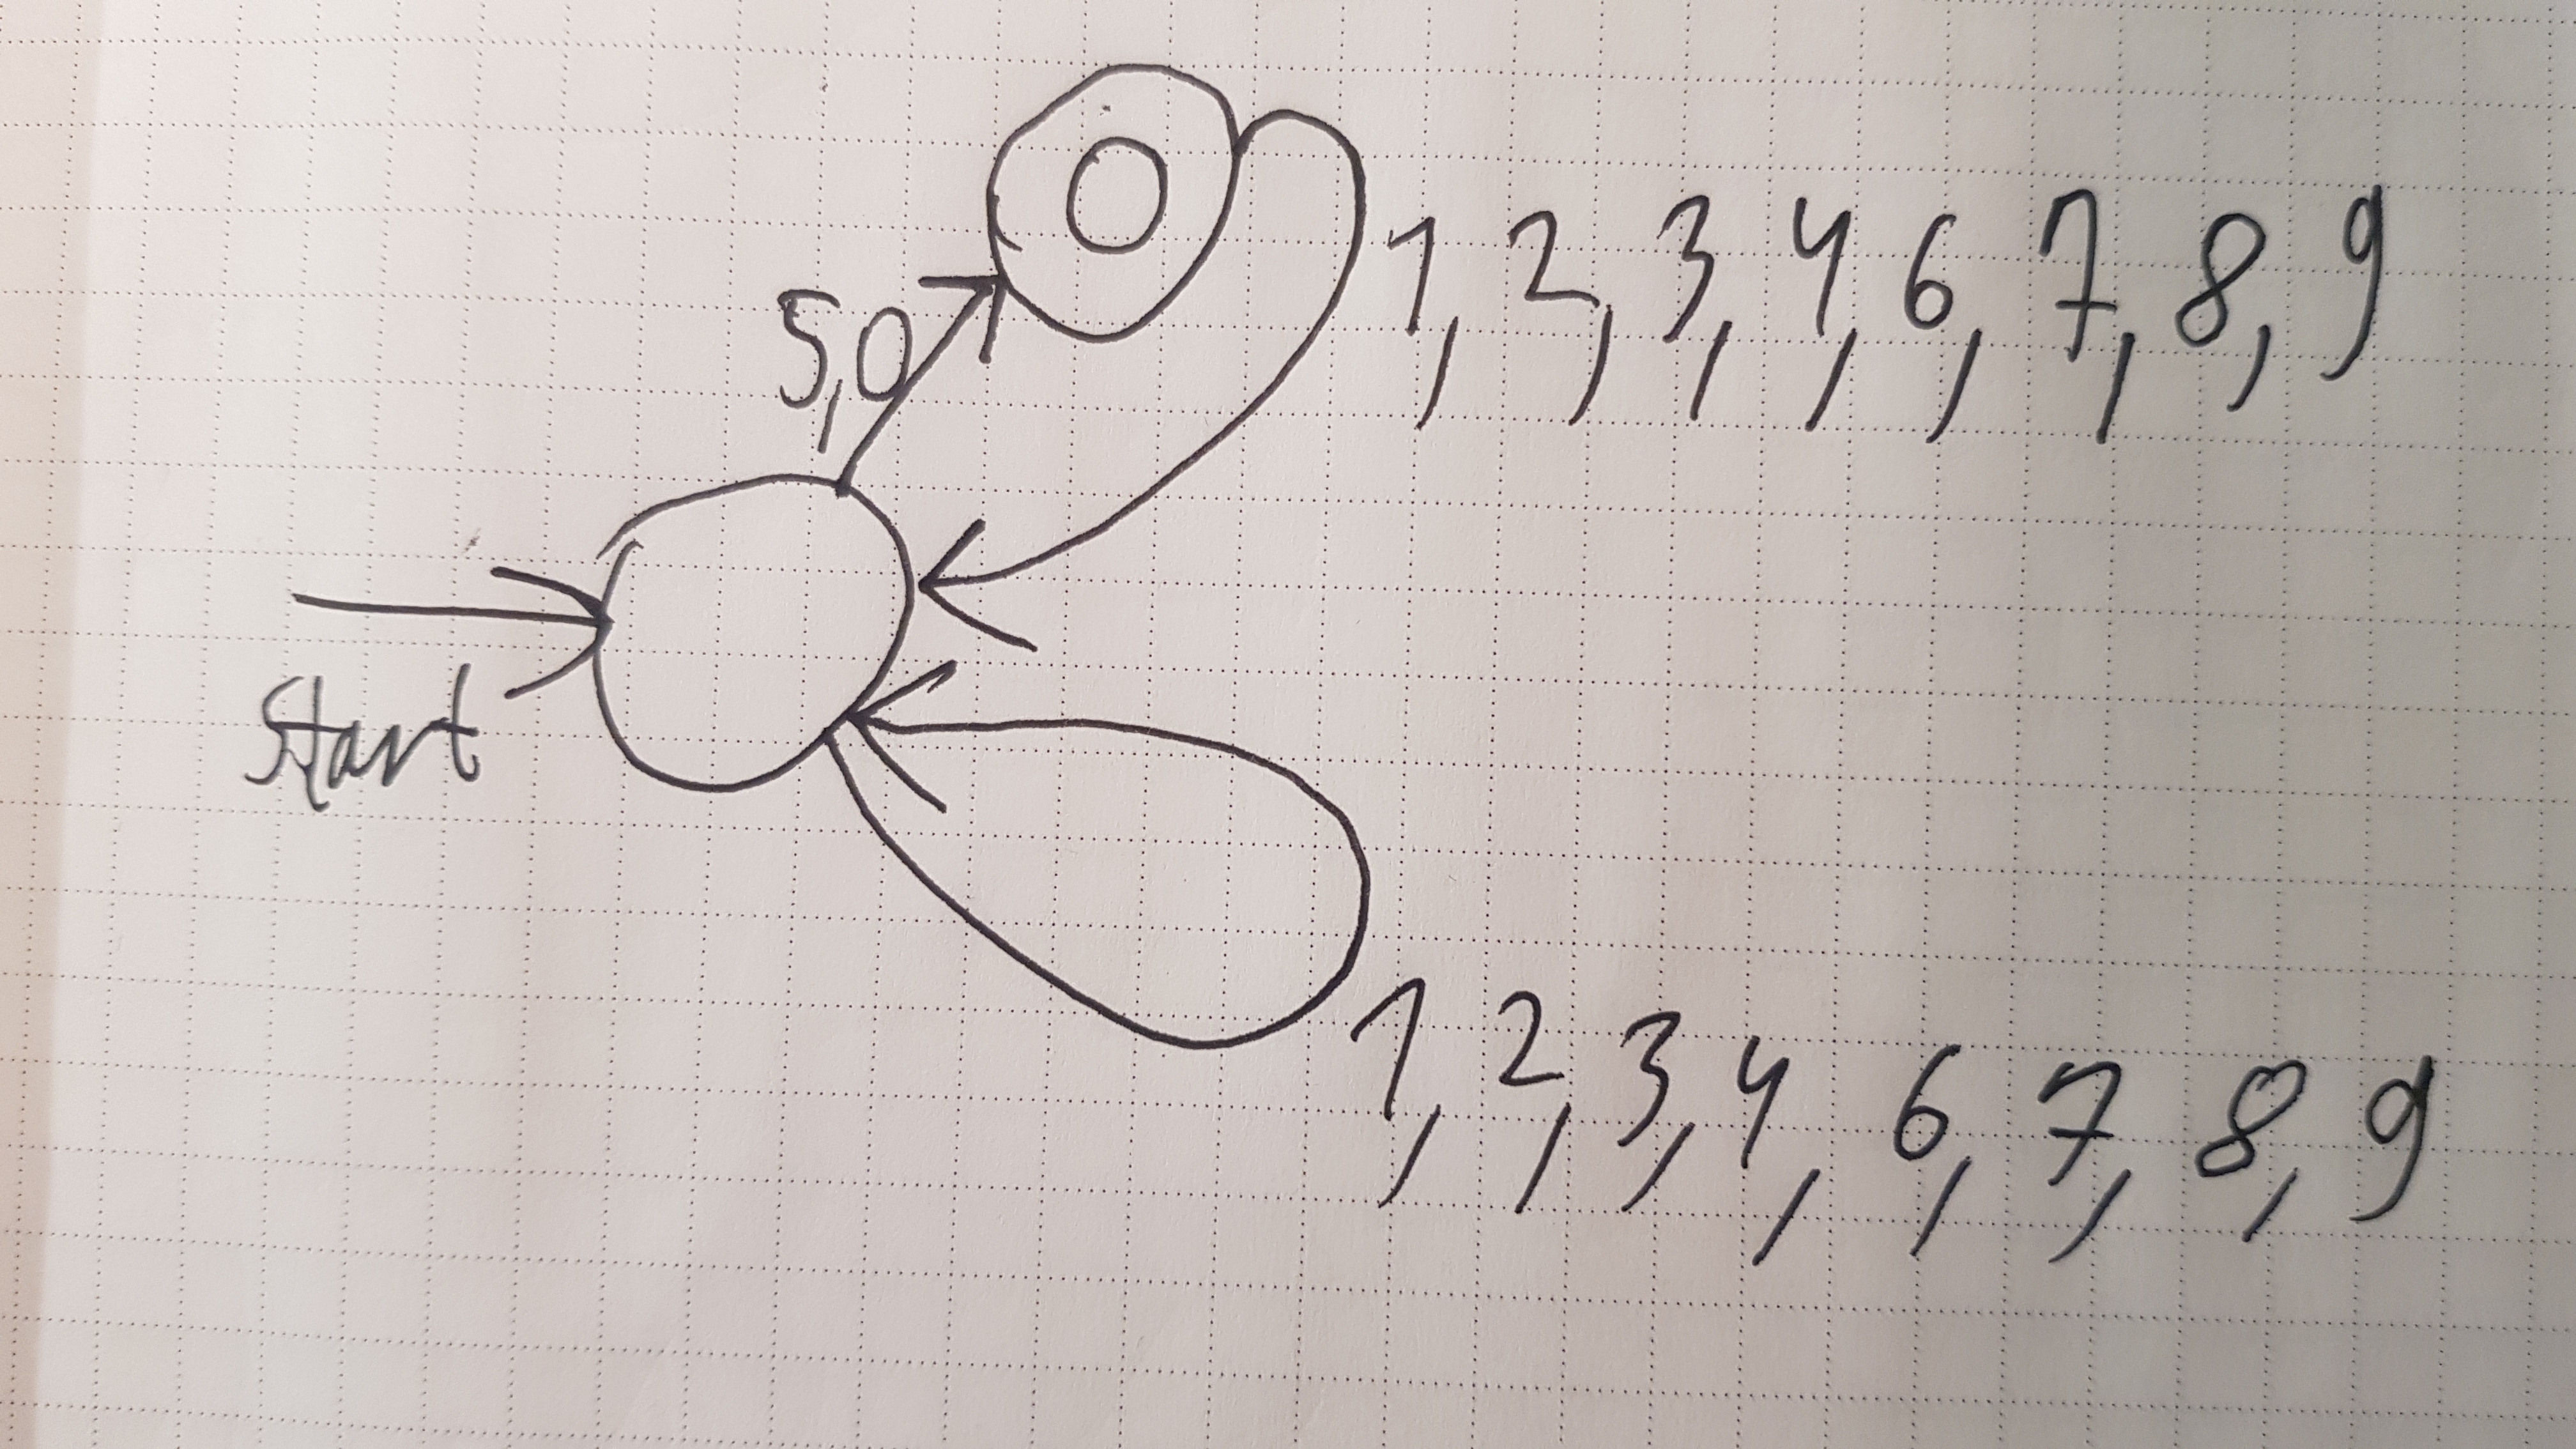 1, 2, 3, 4, 6, 7, 8, 9
5,0
Start
1, 2, 3, 4, 6, 7, 8, 9